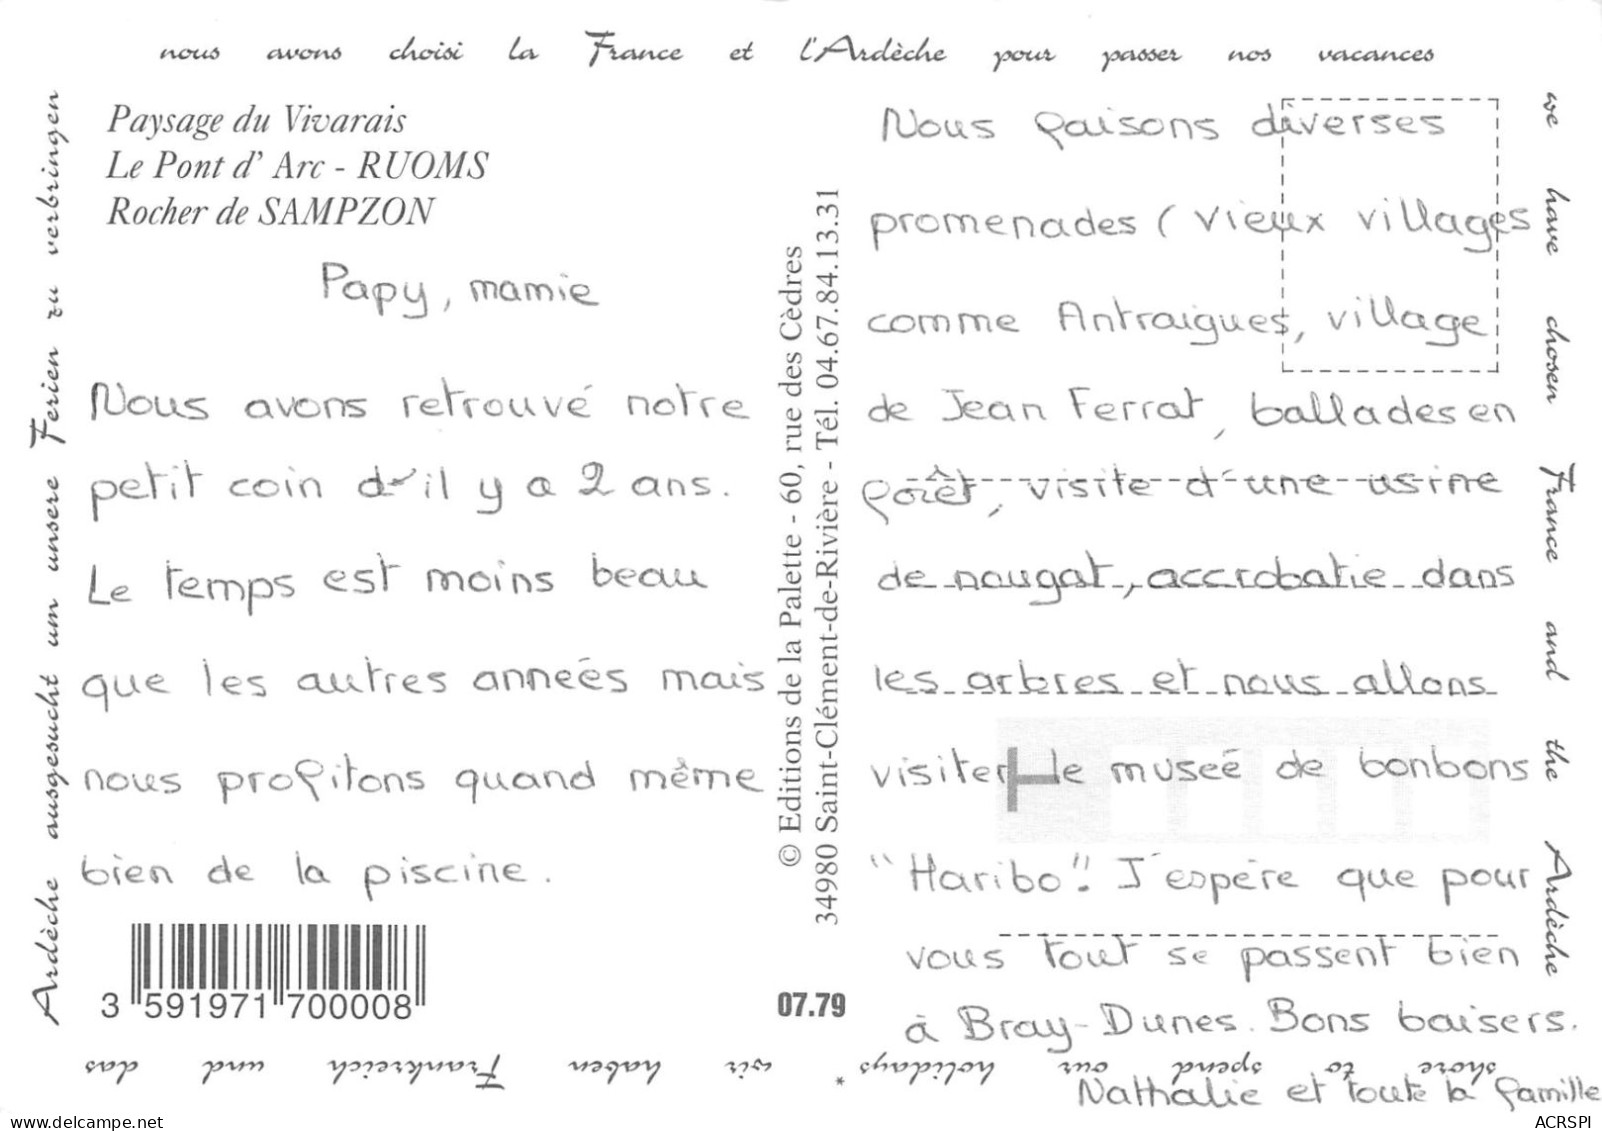 nous avons choisi la France et l'Ardèche pour passer nos vacances
Paysage du Vivarais
Le Pont d' Arc - RUOMS
Rocher de SAMPZON
Papy, mamie
Nous avons retrouvé notre
petit coin d'il y a 2 ans.
Le temps est moins beau
que les autres anneés mais
nous profitons quand même
bien de la piscine.
3 591971 700008
© Editions de la Palette - 60, rue des Cèdres
34980 Saint-Clément-de-Rivière - Tél. 04.67.84.13.31
07.79
Nous faisons diverses
promenades ( vieux villages
comme Antraigues, village
de Jean Ferrat, ballades en
forêt, visite d'une usine
de nougat, accrobatie dans
les arbres et nous allons
visiter le museé de bonbons
"Haribo". J'espère que pour
vous tout se passent bien
à Bray-Dunes. Bons baisers.
Nathalie et toute la famille
we have chosen France and the Ardèche
shore to spend our holidays *
wir haben Frankreich und das
Ardèche ausgesucht um unsere Ferien zu verbringen
delcampe.net
ACRSPI